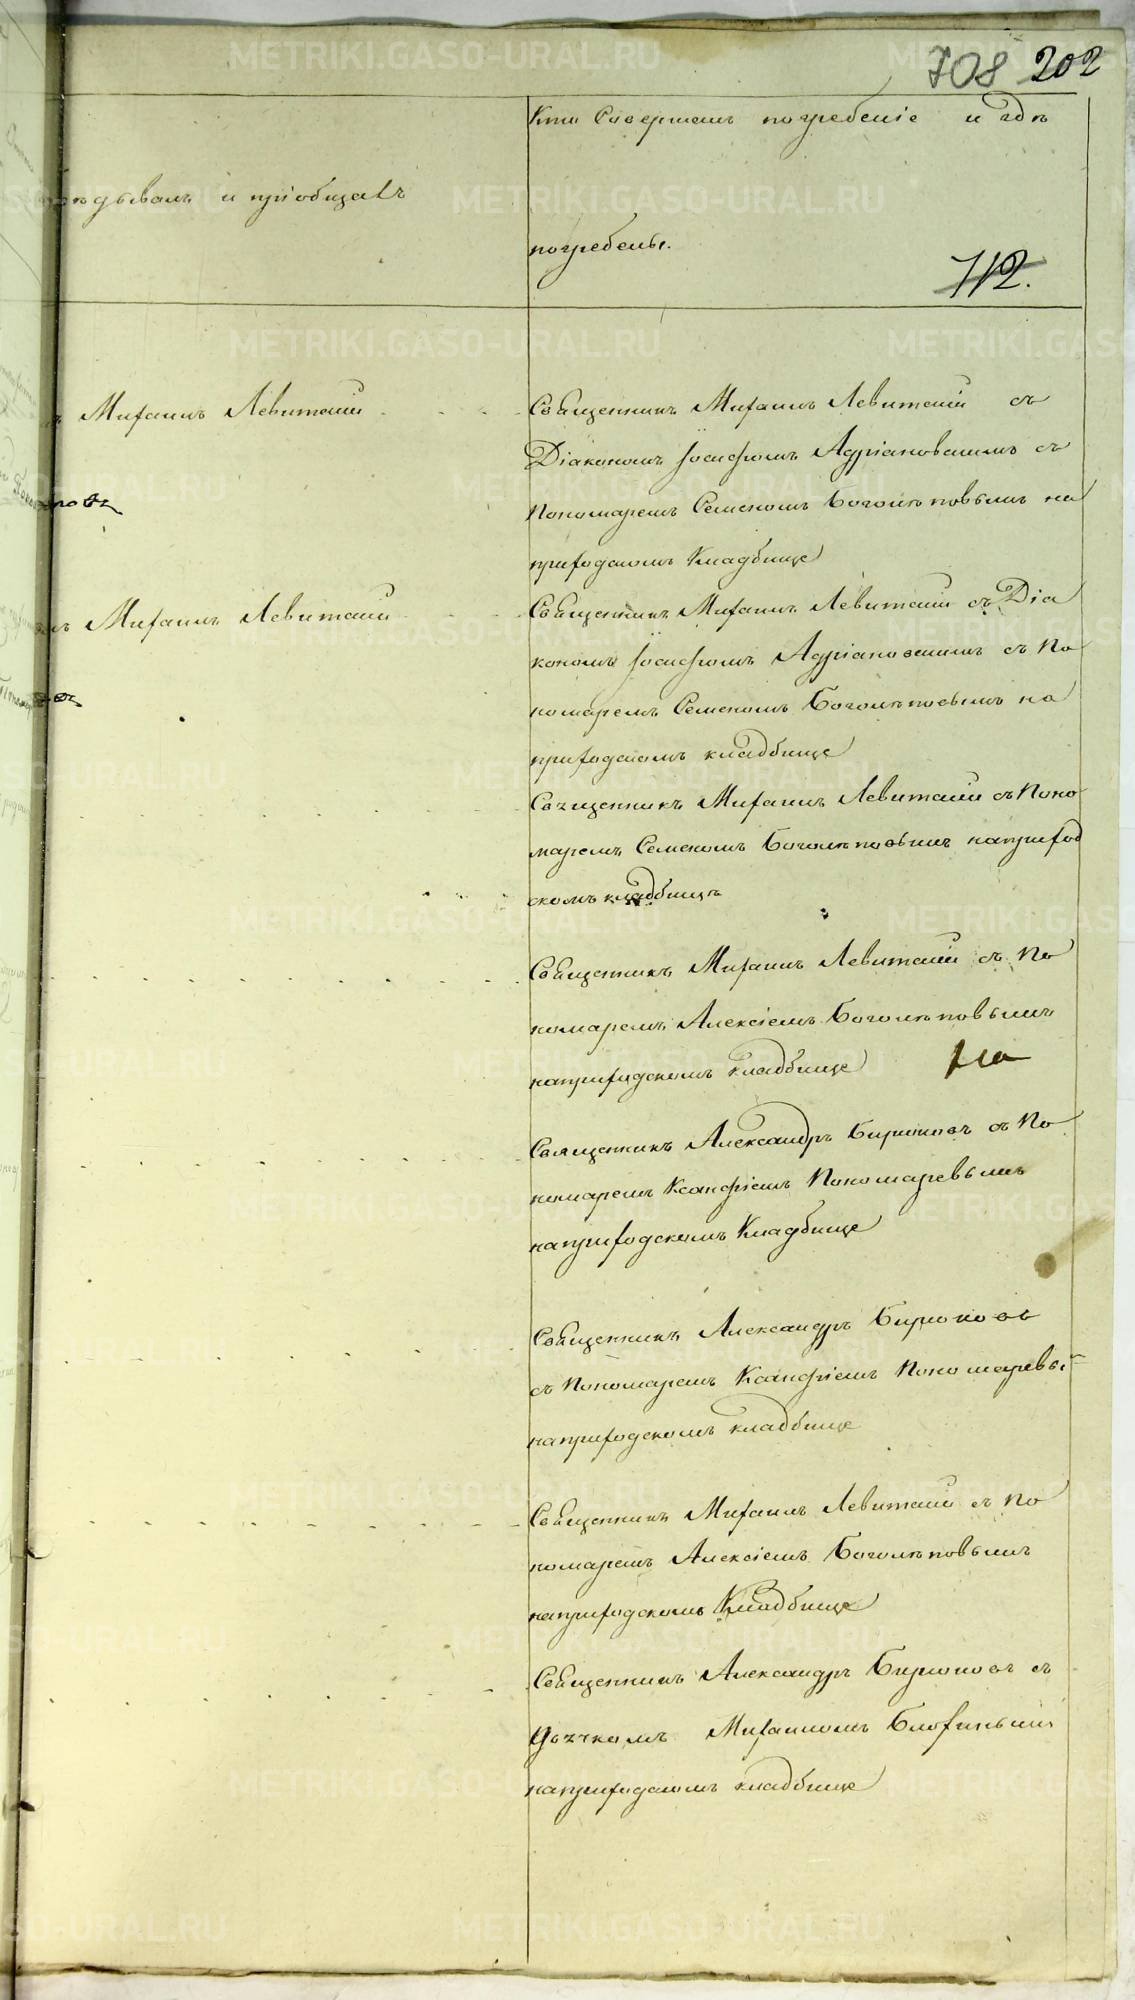 708 202
Кто Совершалъ погребеніе и гдѣ
исповѣдывалъ и пріобщалъ
погребены.
712.
Михаилъ Левитскій
Священникъ Михаилъ Левитскій съ
Діакономъ Іосифомъ Адріановскимъ съ
Пономаремъ Семеномъ Боголѣповымъ на
приходскомъ Кладбище
Михаилъ Левитскій
Священникъ Михаилъ Левитскій съ Діа
кономъ Іосифомъ Адріановскимъ съ По
номаремъ Семеномъ Боголѣповымъ на
приходскомъ кладбище
Священникъ Михаилъ Левитскій съ Поно
маремъ Семеномъ Боголѣповымъ наприход
скомъ кладбищѣ
Священникъ Михаилъ Левитскій съ По
номаремъ Алексіемъ Боголѣповымъ
наприходскомъ кладбище
Священникъ Александръ Бирюковъ съ По
номаремъ Ксанфіемъ Пономаревымъ
наприходскомъ Кладбище
Священникъ Александръ Бирюковъ
съ Пономаремъ Ксанфіемъ Пономаревы
наприходскомъ кладбище
Священникъ Михаилъ Левитскій съ По
номаремъ Алексіемъ Боголѣповымъ
наприходскомъ Кладбище
Священникъ Александръ Бирюковъ съ
Дьячкомъ Михаиломъ
наприходскомъ кладбище
METRIKI.GASO-URAL.RU